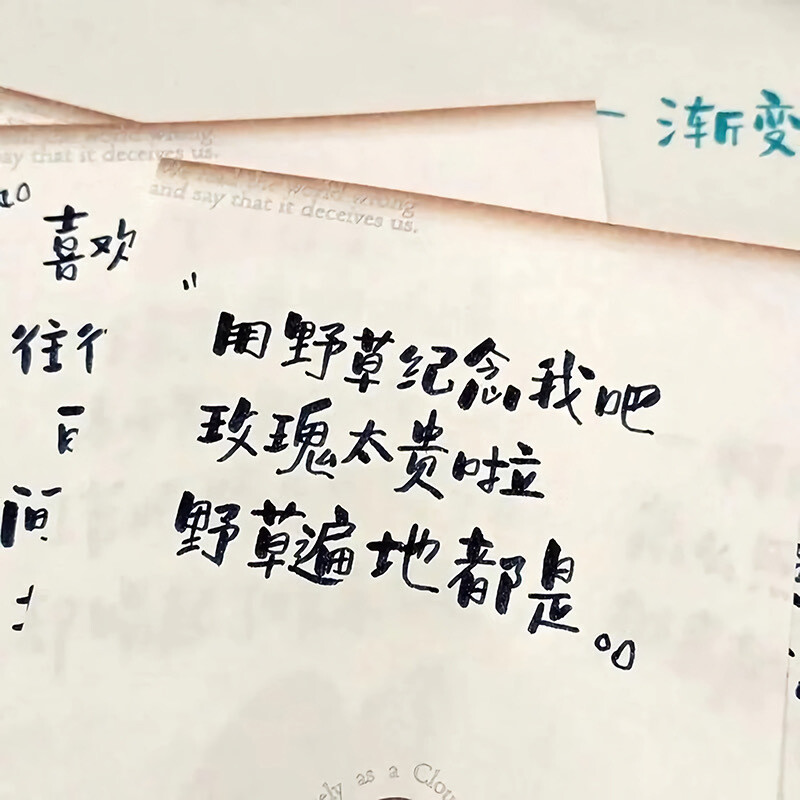 渐变
ay that it deceives us.
We read the world wrong
and say that it deceives us.
喜欢
往往
间
"
用野草纪念我吧
玫瑰太贵啦
野草遍地都是。
as a Clou